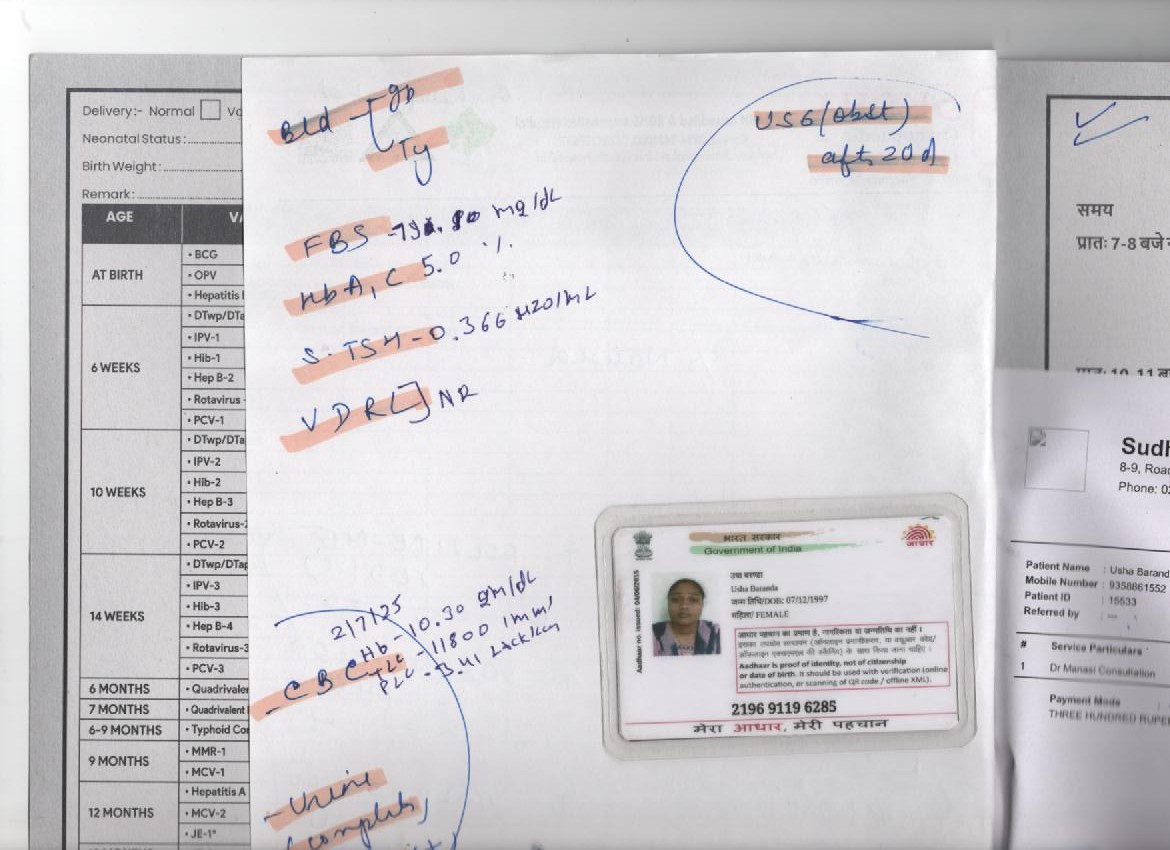 Delivery:- Normal
Neonatal Status:
Birth Weight:
Remark:
AGE
AT BIRTH
• BCG
• OPV
• Hepatitis
6 WEEKS
• DTwp/DTa
• IPV-1
• Hib-1
• Hep B-2
• Rotavirus
• PCV-1
10 WEEKS
• DTwp/DTa
• IPV-2
• Hib-2
• Hep B-3
• Rotavirus-
• PCV-2
14 WEEKS
• DTwp/DTap
• IPV-3
• Hib-3
• Hep B-4
• Rotavirus-3
• PCV-3
6 MONTHS
• Quadrivalen
7 MONTHS
• Quadrivalent
6-9 MONTHS
• Typhoid Co
9 MONTHS
• MMR-1
• MCV-1
12 MONTHS
• Hepatitis A
• MCV-2
• JE-1*
Bld
gp
Ty
FBS - mg/dL
HbA1C 5.0 %
S. TSH - 0.366
VDRL] NR
2/7/25
CBC
Hb - 10.30 gm/dL
TLC - 11800 /mm3
PLT - 3.41 Lack/cum
- Urine
(complete,
USG (Obst)
aft 20 d
भारत सरकार
Government of India
आधार
Aadhaar no. issued: 04/06/2015
उषा बरण्डा
Usha Baranda
जन्म तिथि/DOB: 07/12/1997
महिला/ FEMALE
आधार पहचान का प्रमाण है, नागरिकता या जन्मतिथि का नहीं।
Aadhaar is proof of identity, not of citizenship
or date of birth. It should be used with verification (online
authentication, or scanning of QR code / offline XML).
2196 9119 6285
मेरा आधार, मेरी पहचान
समय
प्रातः 7-8 बजे
Sudh
8-9, Road
Phone: 02
Patient Name : Usha Barand
Mobile Number : 9358861552
Patient ID : 16633
Referred by :
# Service Particulars
1 Dr Manasi Consultation
Payment Mode :
THREE HUNDRED RUPE